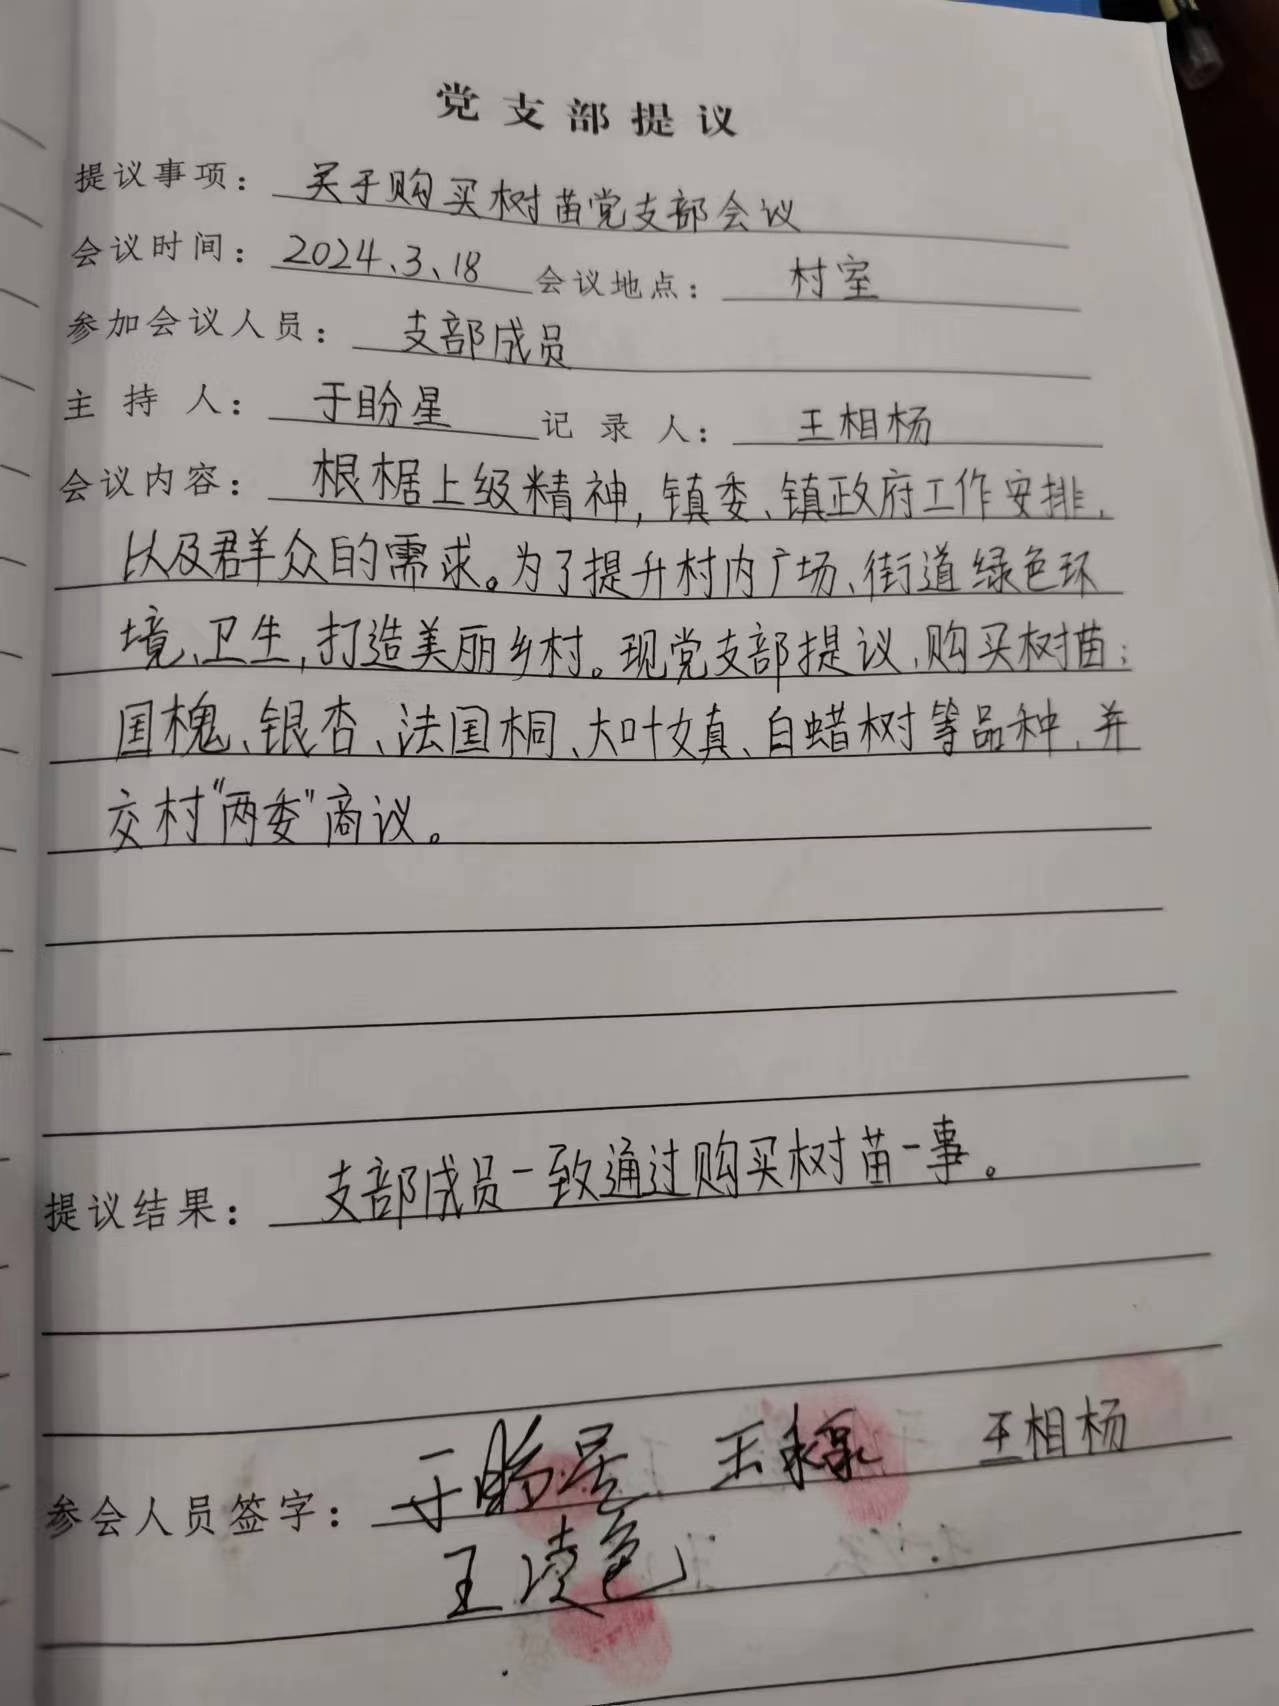 党支部提议
提议事项：关于购买树苗党支部会议
会议时间：2024、3、18 会议地点：村室
参加会议人员：支部成员
主持人：于盼星 记录人：王相杨
会议内容：根椐上级精神，镇委、镇政府工作安排，
以及群众的需求。为了提升村内广场、街道绿色环
境、卫生，打造美丽乡村。现党支部提议，购买树苗：
国槐、银杏、法国桐、大叶女真、白蜡树等品种，并
交村“两委”商议。
提议结果：支部成员一致通过购买树苗一事。
参会人员签字：于盼星 王 王相杨
王凌色